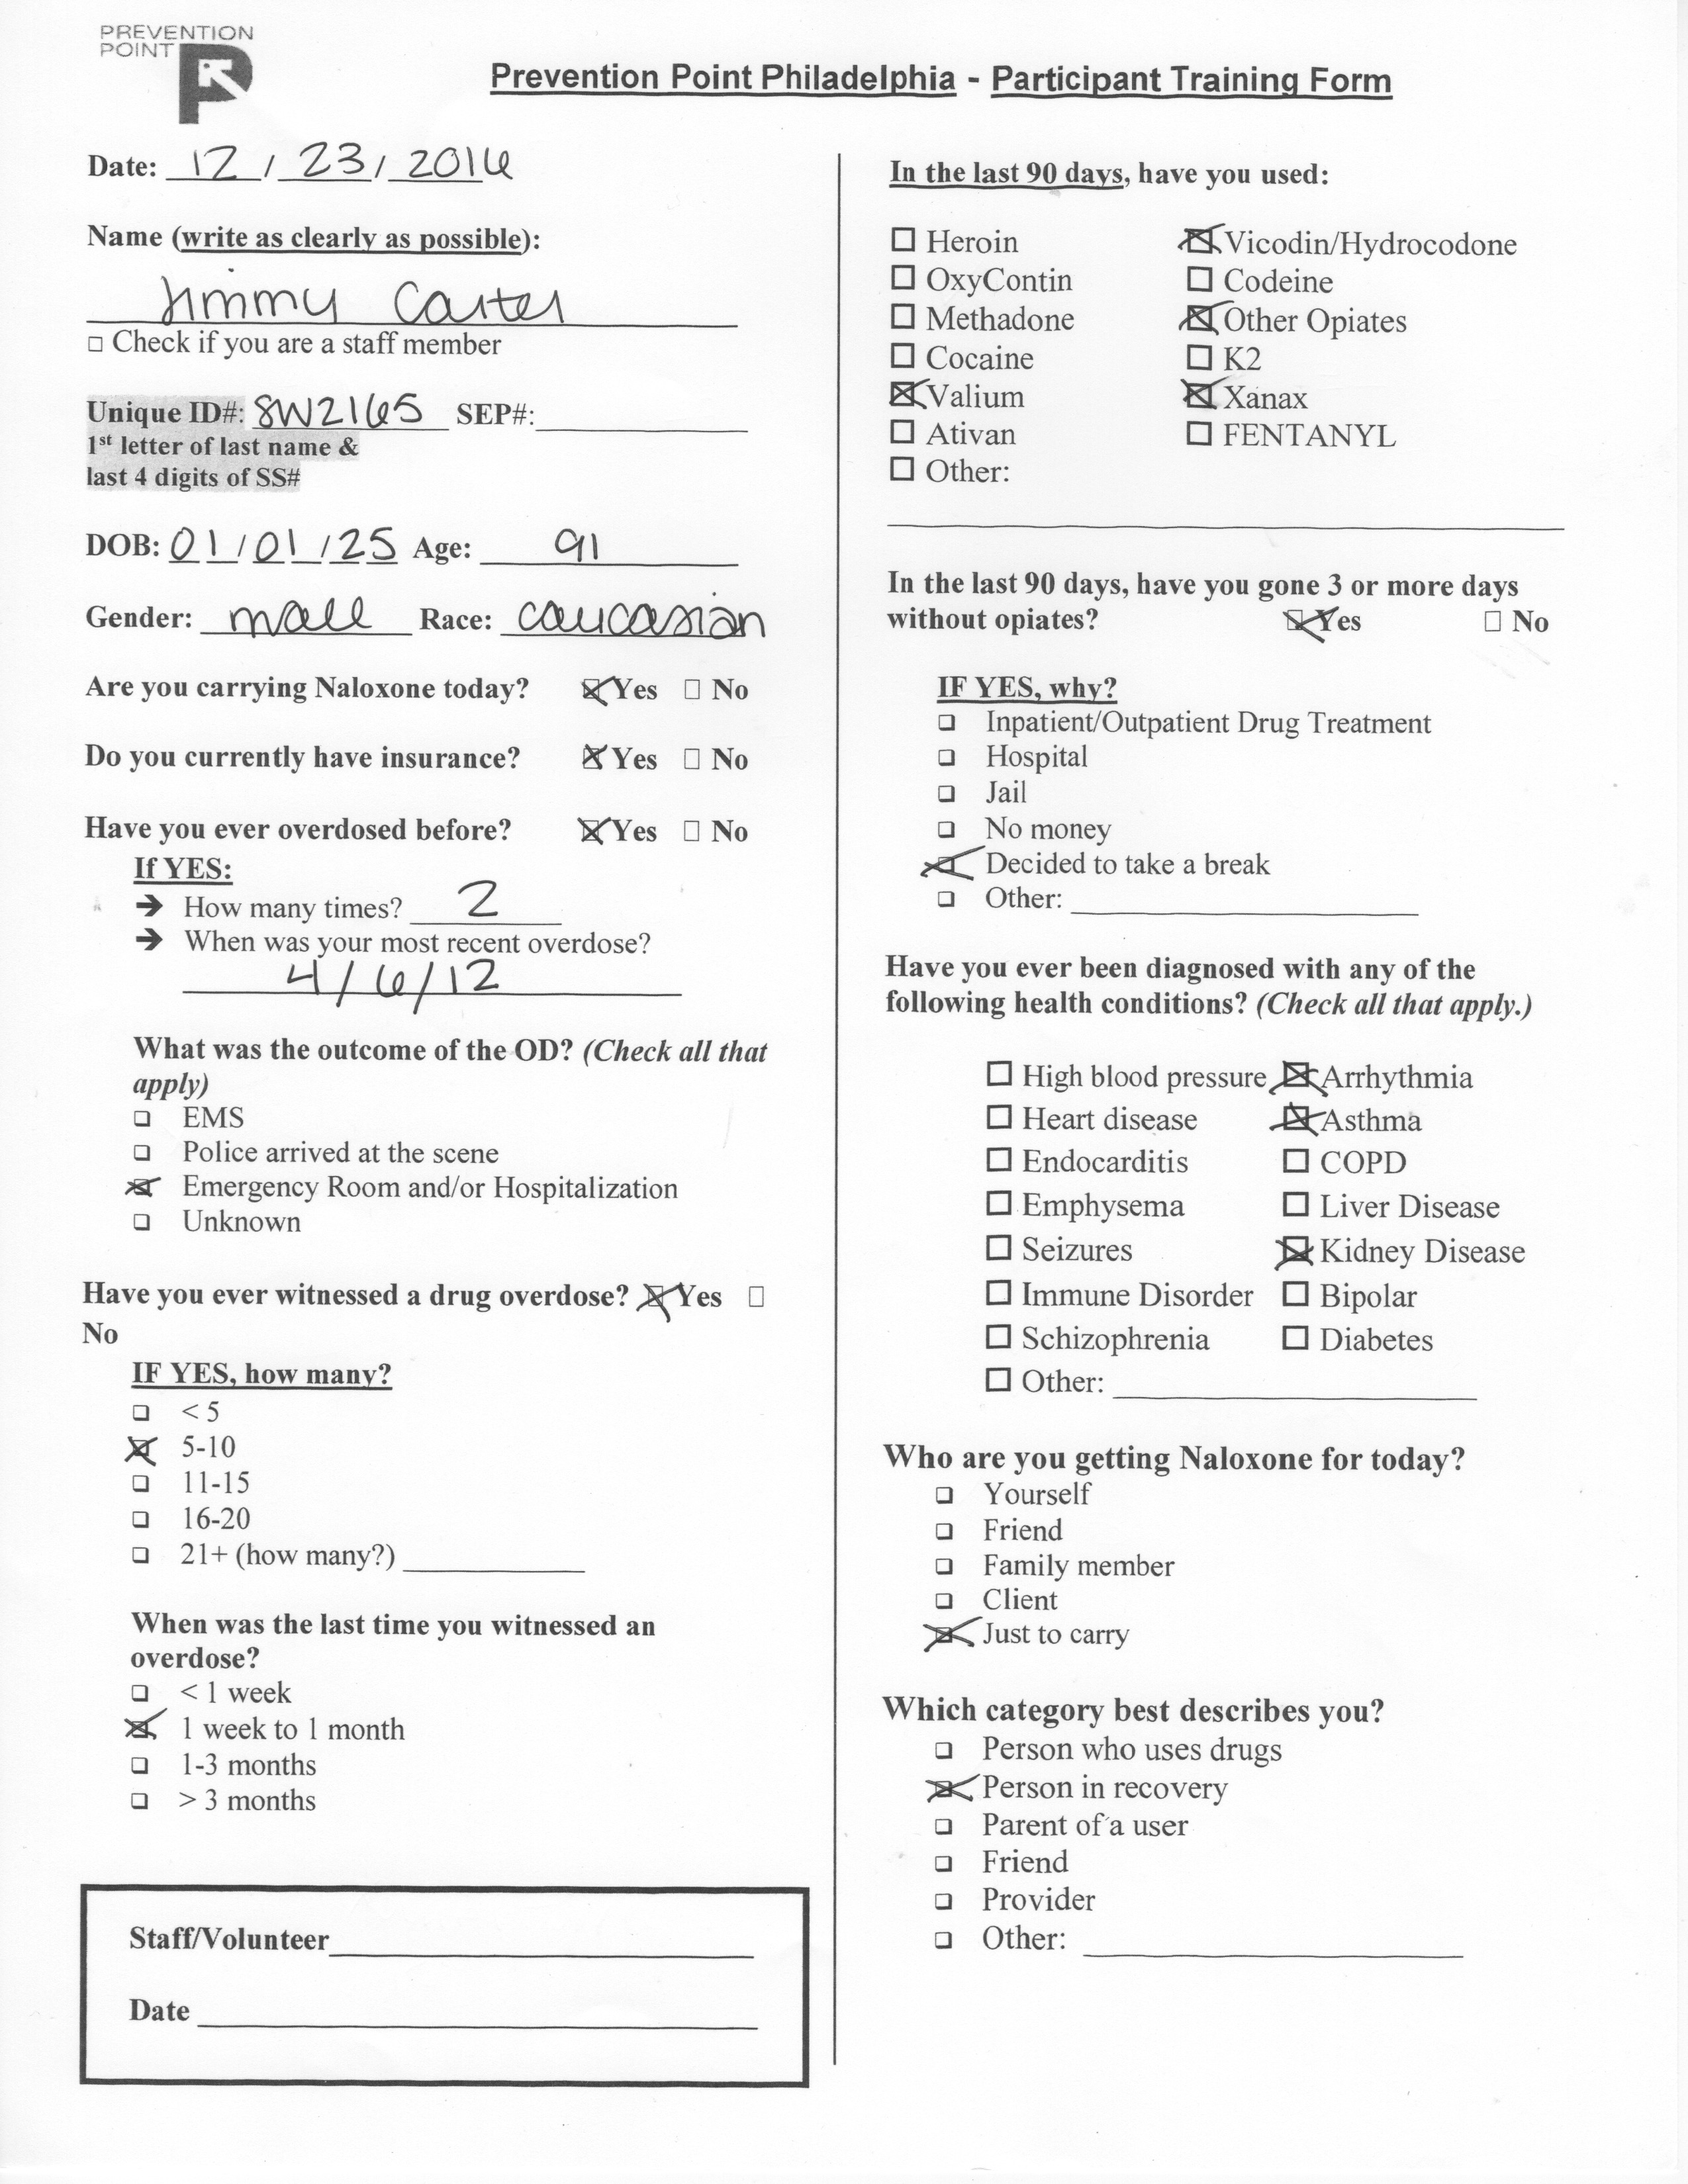 PREVENTION
POINT
Prevention Point Philadelphia - Participant Training Form
Date: 12 / 23 / 2016
Name (write as clearly as possible):
Jimmy Carter
□ Check if you are a staff member
Unique ID#: 8W2165 SEP#:
1st letter of last name &
last 4 digits of SS#
DOB: 01/01/25 Age: 91
Gender: male Race: caucasian
Are you carrying Naloxone today? ☒ Yes □ No
Do you currently have insurance? ☒ Yes □ No
Have you ever overdosed before? ☒ Yes □ No
If YES:
➔ How many times? 2
➔ When was your most recent overdose?
4/6/12
What was the outcome of the OD? (Check all that
apply)
□ EMS
□ Police arrived at the scene
☒ Emergency Room and/or Hospitalization
□ Unknown
Have you ever witnessed a drug overdose? ☒ Yes □
No
IF YES, how many?
□ < 5
☒ 5-10
□ 11-15
□ 16-20
□ 21+ (how many?)
When was the last time you witnessed an
overdose?
□ < 1 week
☒ 1 week to 1 month
□ 1-3 months
□ > 3 months
Staff/Volunteer
Date
In the last 90 days, have you used:
□ Heroin ☒ Vicodin/Hydrocodone
□ OxyContin □ Codeine
□ Methadone ☒ Other Opiates
□ Cocaine □ K2
☒ Valium ☒ Xanax
□ Ativan □ FENTANYL
□ Other:
In the last 90 days, have you gone 3 or more days
without opiates? ☒ Yes □ No
IF YES, why?
□ Inpatient/Outpatient Drug Treatment
□ Hospital
□ Jail
□ No money
☒ Decided to take a break
□ Other:
Have you ever been diagnosed with any of the
following health conditions? (Check all that apply.)
□ High blood pressure ☒ Arrhythmia
□ Heart disease ☒ Asthma
□ Endocarditis □ COPD
□ Emphysema □ Liver Disease
□ Seizures ☒ Kidney Disease
□ Immune Disorder □ Bipolar
□ Schizophrenia □ Diabetes
□ Other:
Who are you getting Naloxone for today?
□ Yourself
□ Friend
□ Family member
□ Client
☒ Just to carry
Which category best describes you?
□ Person who uses drugs
☒ Person in recovery
□ Parent of a user
□ Friend
□ Provider
□ Other: